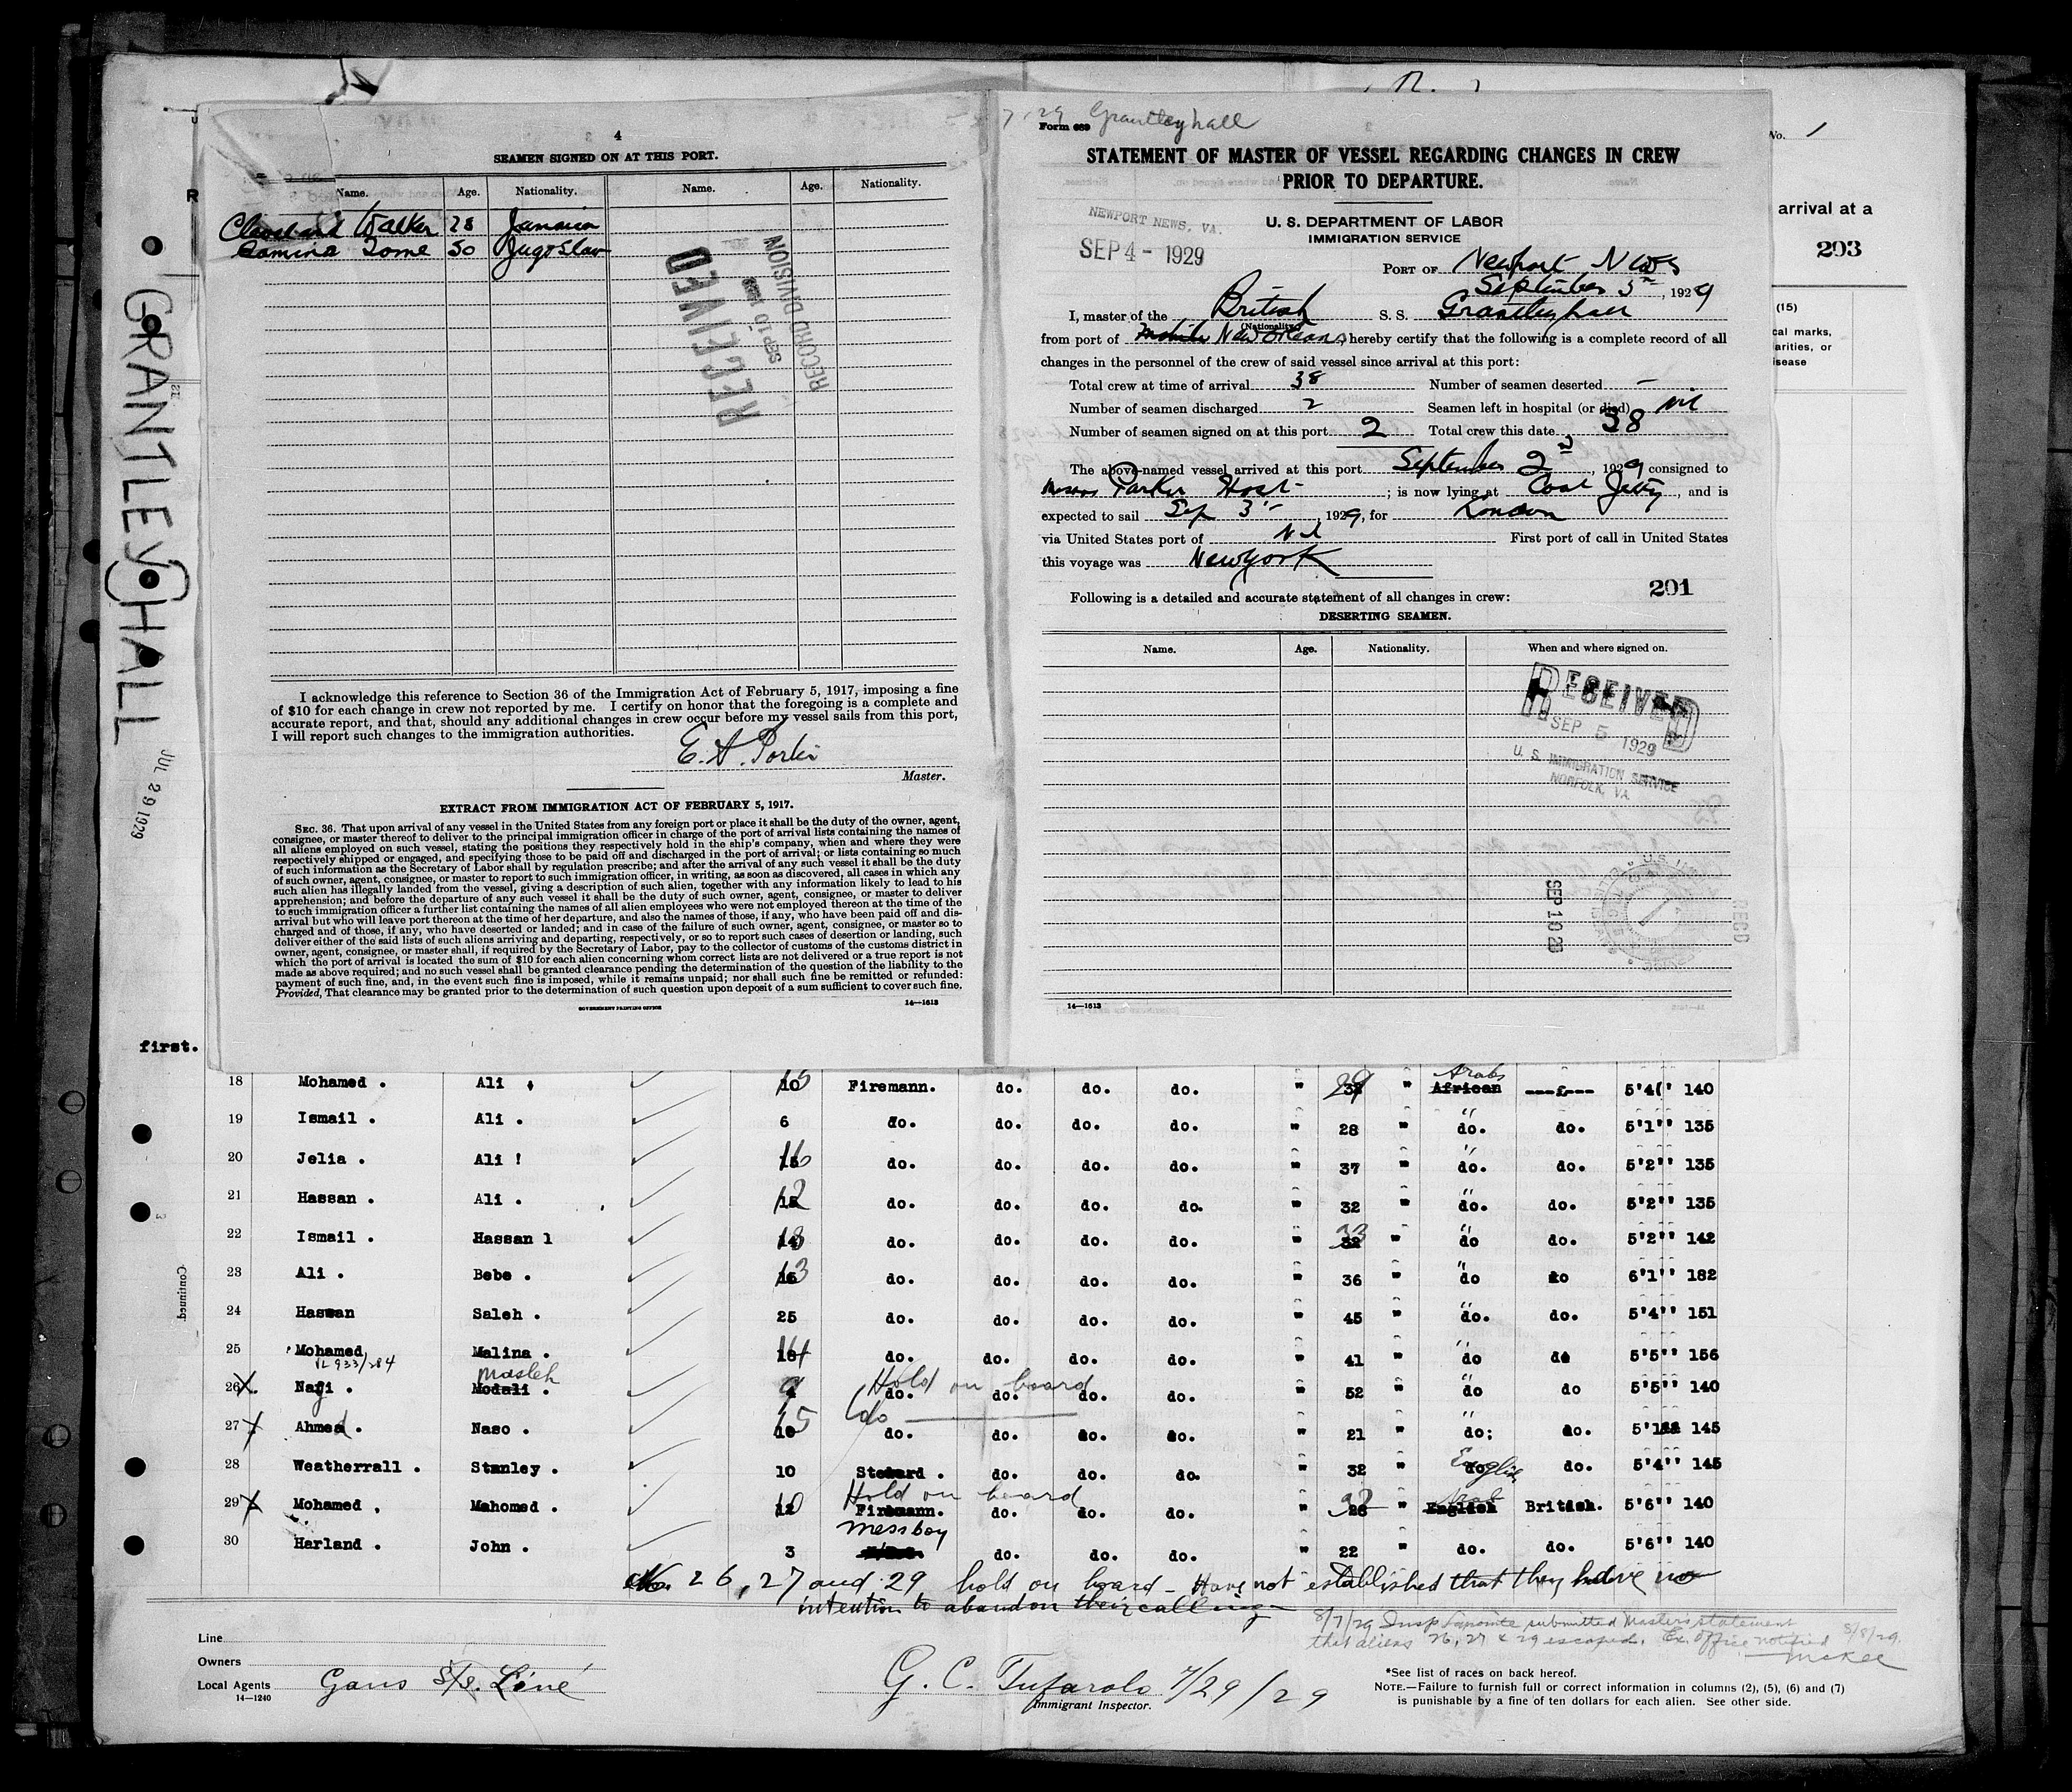 GRANTLEY HALL
JUL 29 1929
first.
Continued
4
SEAMEN SIGNED ON AT THIS PORT.
Name. Age. Nationality. Name. Age. Nationality.
Walker 28 Jamaica
Tome 50 Jugoslav
RECEIVED
SEP 10 1929
RECORD DIVISION
I acknowledge this reference to Section 36 of the Immigration Act of February 5, 1917, imposing a fine
of $10 for each change in crew not reported by me. I certify on honor that the foregoing is a complete and
accurate report, and that, should any additional changes in crew occur before my vessel sails from this port,
I will report such changes to the immigration authorities.
E. A.
Master.
EXTRACT FROM IMMIGRATION ACT OF FEBRUARY 5, 1917.
SEC. 36. That upon arrival of any vessel in the United States from any foreign port or place it shall be the duty of the owner, agent,
consignee, or master thereof to deliver to the principal immigration officer in charge of the port of arrival lists containing the names of
all aliens employed on such vessel, stating the positions they respectively hold in the ship's company, when and where they were
respectively shipped or engaged, and specifying those to be paid off and discharged in the port of arrival; or lists containing so much
of such information as the Secretary of Labor shall by regulation prescribe; and after the arrival of any such vessel it shall be the duty
of such owner, agent, consignee, or master to report to such immigration officer, in writing, as soon as discovered, all cases in which any
such alien has illegally landed from the vessel, giving a description of such alien, together with any information likely to lead to his
apprehension; and before the departure of any such vessel it shall be the duty of such owner, agent, consignee, or master to deliver
to such immigration officer a further list containing the names of all alien employees who were not employed thereon at the time of the
arrival but who will leave port thereon at the time of her departure, and also the names of those, if any, who have been paid off and dis-
charged and of those, if any, who have deserted or landed; and in case of the failure of such owner, agent, consignee, or master so to
deliver either of the said lists of such aliens arriving and departing, respectively, or so to report such cases of desertion or landing, such
owner, agent, consignee, or master shall, if required by the Secretary of Labor, pay to the collector of customs of the customs district in
which the port of arrival is located the sum of $10 for each alien concerning whom correct lists are not delivered or a true report is not
made as above required; and no such vessel shall be granted clearance pending the determination of the question of the liability to the
payment of such fine, and, in the event such fine is imposed, while it remains unpaid; nor shall such fine be remitted or refunded:
Provided, That clearance may be granted prior to the determination of such question upon deposit of a sum sufficient to cover such fine.
GOVERNMENT PRINTING OFFICE
14—1613
Form 689 Grantleyhall
STATEMENT OF MASTER OF VESSEL REGARDING CHANGES IN CREW
PRIOR TO DEPARTURE.
U. S. DEPARTMENT OF LABOR
IMMIGRATION SERVICE
NEWPORT NEWS, VA.
SEP 4 - 1929
PORT OF Newport News
September 3rd, 1929
I, master of the British S. S. Grantleyhall
(Nationality)
from port of Mobile New Orleans, hereby certify that the following is a complete record of all
changes in the personnel of the crew of said vessel since arrival at this port:
Total crew at time of arrival 38 Number of seamen deserted -
Number of seamen discharged 2 Seamen left in hospital (or died) nil
Number of seamen signed on at this port 2 Total crew this date 38
The above-named vessel arrived at this port September 2nd, 1929 consigned to
Messrs Parker Host; is now lying at Coal Jetty, and is
expected to sail Sep 3rd, 1929, for London
via United States port of Nil First port of call in United States
this voyage was New York
201
Following is a detailed and accurate statement of all changes in crew:
DESERTING SEAMEN.
Name. Age. Nationality. When and where signed on.
RECEIVED
SEP 5 1929
U. S. IMMIGRATION SERVICE
NORFOLK, VA.
SEP 10 29
RECD
14—1613
No. 1
arrival at a
203
(15)
cal marks,
larities, or
isease
18 Mohamed . Ali . 10 15 Firemann. do. do. do. " 38 29 " African Arab 5'4 140
19 Ismail . Ali . 6 do. do. do. do. " 28 " do. do. 5'1'' 135
20 Jelia . Ali ! 15 16 do. do. do. do. " 37 " do. do. 5'2'' 135
21 Hassan . Ali . 12 do. do. do. do. " 32 " do. do. 5'2'' 135
22 Ismail . Hassan l 14 13 do. do. do. do. " 32 33 " do do. 5'2'' 142
23 Ali . Bebe . 13 do. do. do. do. " 36 " do do 6'1'' 182
24 Hassan Saleh . 25 do. do. do. do. " 45 " do. do. 5'4'' 151
25 Mohamed Malina . 14 do. do. do. do. " 41 " do do 5'5'' 156
VL 933/284
26 X Nagi . Modali . Masleh 9 do. do. do. do. Hold on board " 52 " do do 5'5'' 140
27 X Ahmed . Naso . 10 15 do. do. do. do. do " 21 " do: do. 5'1 145
28 Weatherrall . Stanley . 10 Steward . do. do. do. " 32 " do. English do. 5'4'' 145
29 X Mohamed . Mahomed . 12 10 Firemann. do. do. do. Hold on board " 28 32 " English Arab British. 5'6'' 140
30 Harland . John . 3 messboy do. do. do. " 22 " do. do. 5'6'' 140
No. 26, 27 and 29 hold on board - Have not established that they have no
intention to abandon their calling
8/7/29 Insp submitted Masters statement
that aliens 26, 27 & 29 escaped. Ex. Office notified 8/8/29.
McKee
Line
Owners
Local Agents Gans S/S. Line
14—1240
G. C. Tufarolo 7/29/29
Immigrant Inspector.
*See list of races on back hereof.
NOTE.—Failure to furnish full or correct information in columns (2), (5), (6) and (7)
is punishable by a fine of ten dollars for each alien. See other side.